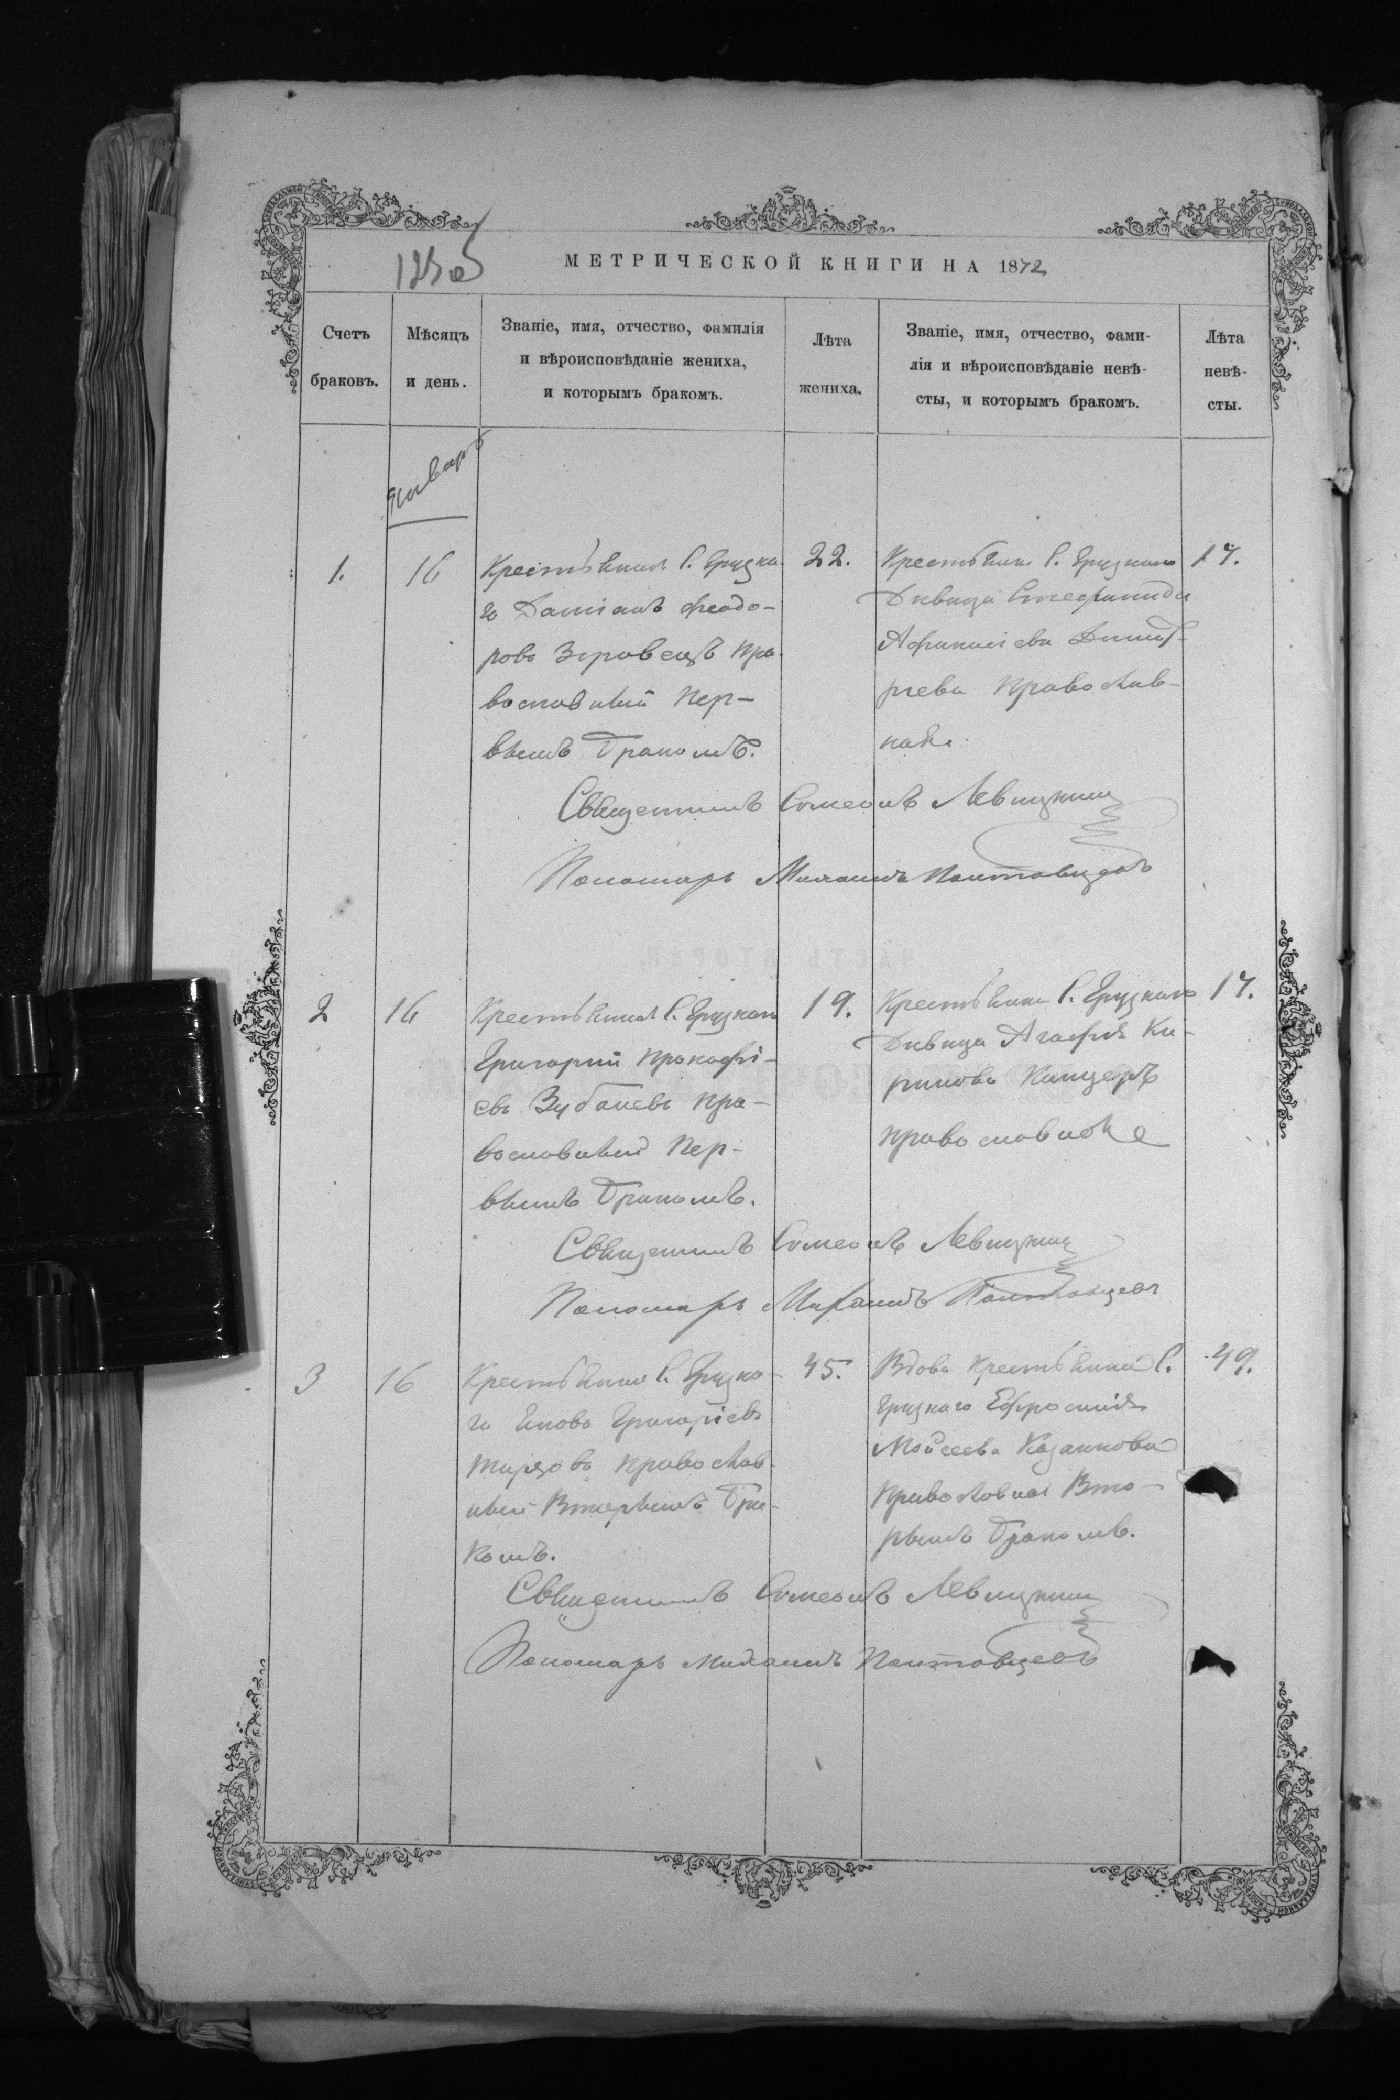 МЕТРИЧЕСКОЙ КНИГИ НА 1872
Счетъ браковъ.
Мѣсяцъ и день.
Званіе, имя, отчество, фамилія
и вѣроисповѣданіе жениха,
и которымъ бракомъ.
Лѣта жениха.
Званіе, имя, отчество, фами-
лія и вѣроисповѣданіе невѣ-
сты, и которымъ бракомъ.
Лѣта невѣ-
сты.
Январь
1.
16
Крестьянинъ С. Грузка-
го Даміанъ Феодо-
ровъ пра-
вославный пер-
вымъ бракомъ.
22.
Крестьянка С. Грузкаго
Дѣвица Стефанида
Афанасіева Димит-
ріева православ-
ная
17.
Священникъ Симеонъ Левицкій
Пономарь Михаилъ Полтавцевъ
2
16
Крестьянинъ С. Грузкаго
Григорій Прокофі-
евъ пра-
вославный пер-
вымъ бракомъ.
19.
Крестьянка С. Грузкаго
Дѣвица Агафія Ки-
рилова
православная
17.
Священникъ Симеонъ Левицкій
Пономарь Михаилъ Полтавцевъ
3
16
Крестьянинъ С. Грузка-
го Григоріевъ
православ-
ный Вторымъ бра-
комъ.
45.
Вдова крестьянка С.
Грузкаго Ефросинія
Мойсеева
Православная Вто-
рымъ бракомъ.
49.
Священникъ Симеонъ Левицкій
Пономарь Михаилъ Полтавцевъ